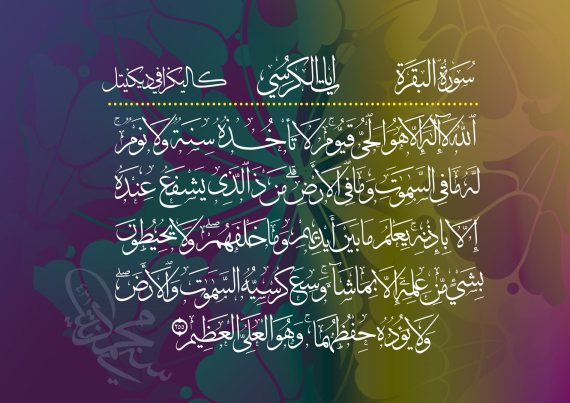 سُورَةُ البَقَرَة ايات الكُرْسِي كاليكرافي ديكيتل
اَللّٰهُ لَآ اِلٰهَ اِلَّا هُوَ الْحَيُّ قَيُّومُ ۚ لَا تَأْخُذُهُ سِنَةٌ وَلَا نَوْمٌ ۚ
لَهُ مَا فِي السَّمٰوٰتِ وَمَا فِي الْاَرْضِ ۗ مَنْ ذَ الَّذِي يَشْفَعُ عِنْدَهُ
اِلَّا بِاِذْنِهِ ۚ يَعْلَمُ مَا بَيْنَ أَيْدِيْهِمْ وَمَا خَلْفَهُمْ ۖ وَلَا يُحِيْطُوْنَ
بِشَيْءٍ مِّنْ عِلْمِهِ اِلَّا بِمَا شَآءَ ۚ وَسِعَ كُرْسِيُّهُ السَّمٰوٰتِ وَالْاَرْضَ ۖ
وَلَا يَؤُدُهُ حِفْظُهُمَا ۚ وَهُوَ الْعَلِيُّ الْعَظِيْمُ ٢٥٥